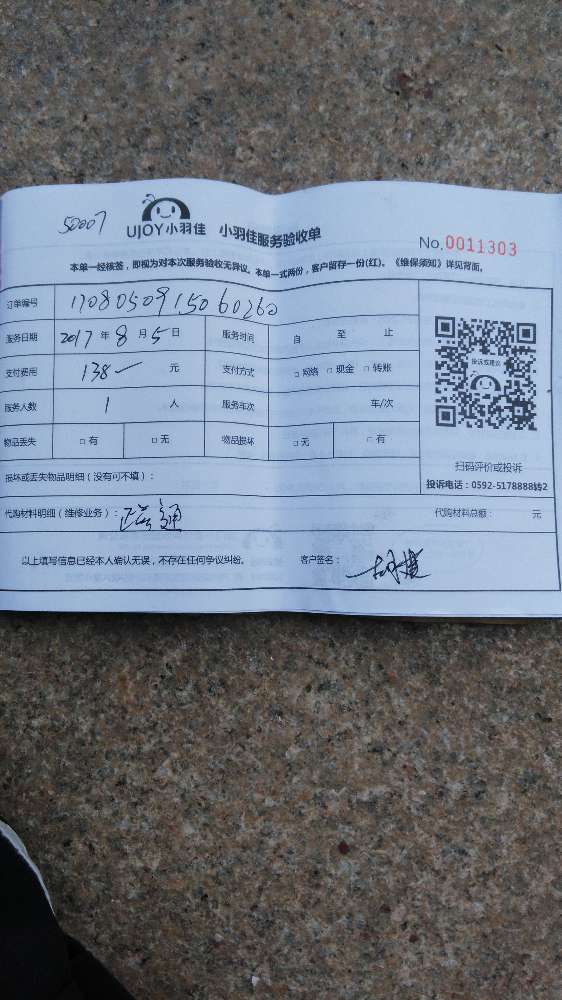 50007
UJOY小羽佳 小羽佳服务验收单
No.0011303
本单一经核签，即视为对本次服务验收无异议。本单一式两份，客户留存一份(红)。《维保须知》详见背面。
订单编号 1708050915060260
服务日期 2017 年 8 月 5 日 服务时间 自 至 止
支付费用 138 元 支付方式 □网络 □现金 □转账
服务人数 1 人 服务车次 车/次
物品丢失 □有 □无 物品损坏 □无 □有
投诉或建议
扫码评价或投诉
投诉电话：0592-5178888转2
损坏或丢失物品明细（没有可不填）：
代购材料明细（维修业务）： 通 代购材料总额： 元
以上填写信息已经本人确认无误，不存在任何争议纠纷。 客户签名：